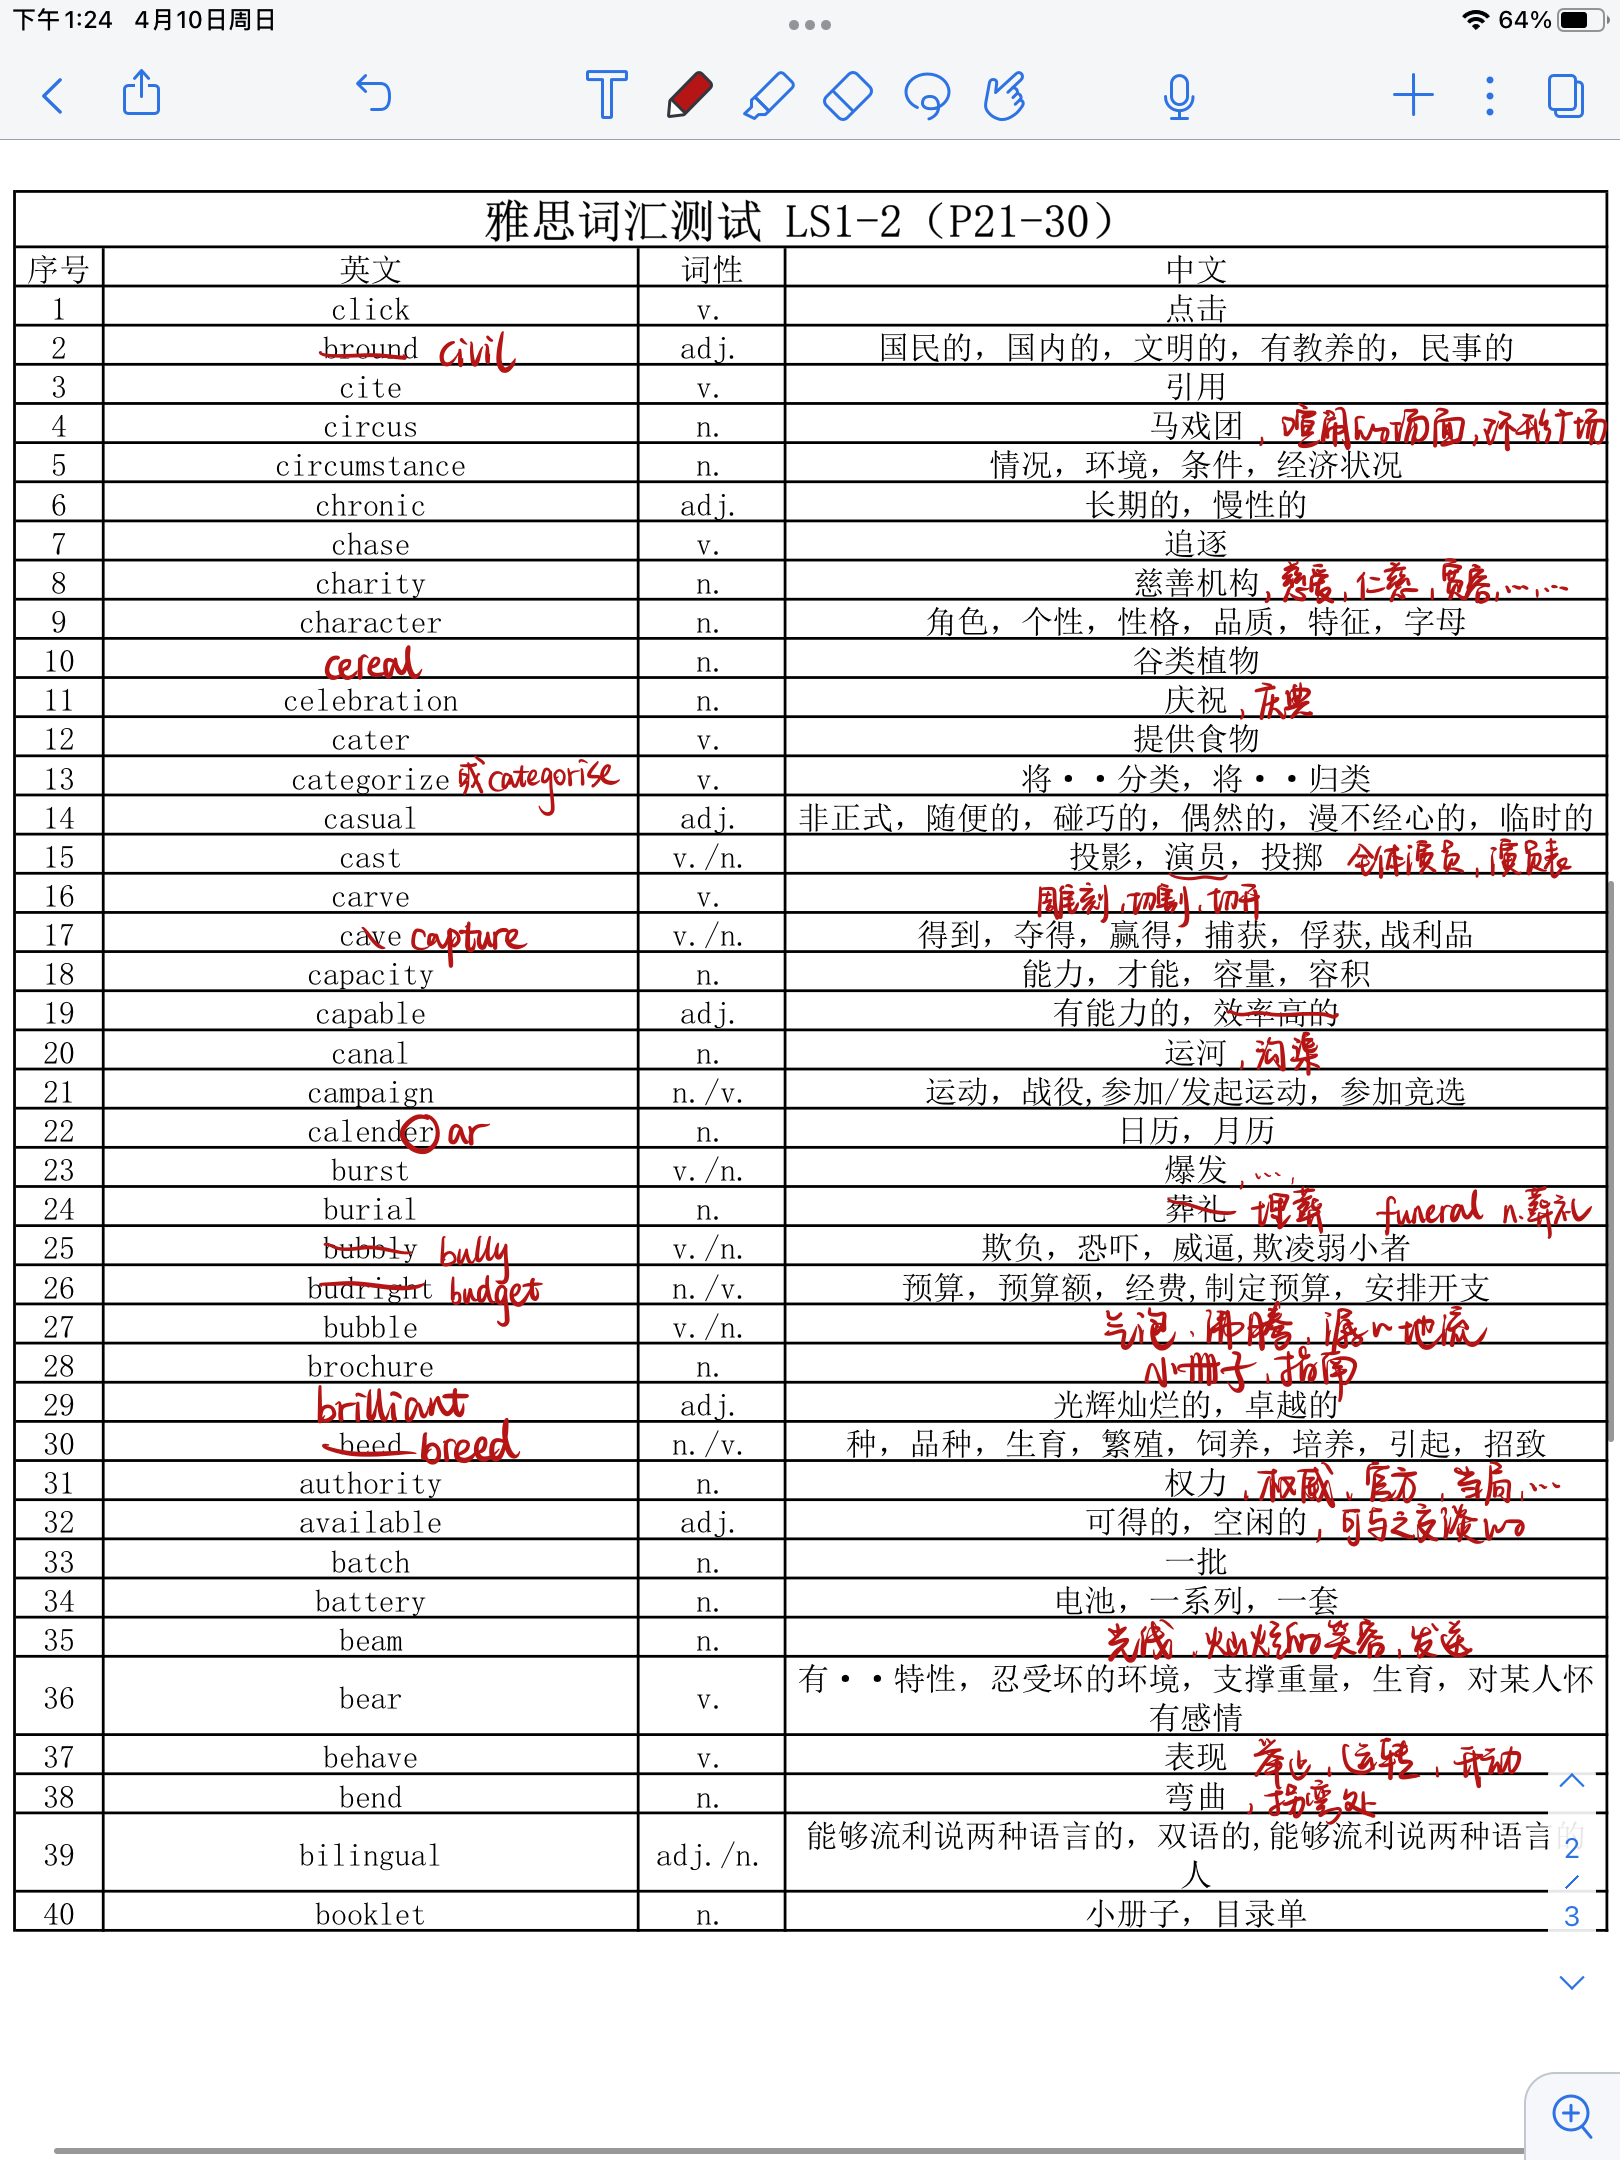 下午1:24 4月10日周日 64%
雅思词汇测试 LS1-2（P21-30）
序号 英文 词性 中文
1 click v. 点击
2 bround civil adj. 国民的，国内的，文明的，有教养的，民事的
3 cite v. 引用
4 circus n. 马戏团，喧闹的场面，环形广场
5 circumstance n. 情况，环境，条件，经济状况
6 chronic adj. 长期的，慢性的
7 chase v. 追逐
8 charity n. 慈善机构，慈爱，仁慈，宽容，…，…
9 character n. 角色，个性，性格，品质，特征，字母
10 cereal n. 谷类植物
11 celebration n. 庆祝，庆典
12 cater v. 提供食物
13 categorize 或 categorise v. 将··分类，将··归类
14 casual adj. 非正式，随便的，碰巧的，偶然的，漫不经心的，临时的
15 cast v./n. 投影，演员，投掷 全体演员，演员表
16 carve v. 雕刻，切割，切开
17 cave capture v./n. 得到，夺得，赢得，捕获，俘获,战利品
18 capacity n. 能力，才能，容量，容积
19 capable adj. 有能力的，效率高的
20 canal n. 运河，沟渠
21 campaign n./v. 运动，战役,参加/发起运动，参加竞选
22 calender ar n. 日历，月历
23 burst v./n. 爆发，…，
24 burial n. 葬礼 埋葬 funeral n.葬礼
25 bubbly bully v./n. 欺负，恐吓，威逼,欺凌弱小者
26 budright budget n./v. 预算，预算额，经费,制定预算，安排开支
27 bubble v./n. 气泡，沸腾，潺潺地流
28 brochure n. 小册子，指南
29 brilliant adj. 光辉灿烂的，卓越的
30 beed breed n./v. 种，品种，生育，繁殖，饲养，培养，引起，招致
31 authority n. 权力，权威，官方，当局，…
32 available adj. 可得的，空闲的，可与之交谈的
33 batch n. 一批
34 battery n. 电池，一系列，一套
35 beam n. 光线，灿烂的笑容，发送
36 bear v. 有··特性，忍受坏的环境，支撑重量，生育，对某人怀
有感情
37 behave v. 表现 举止，运转，开动
38 bend n. 弯曲，拐弯处
39 bilingual adj./n. 能够流利说两种语言的，双语的,能够流利说两种语言的
人
40 booklet n. 小册子，目录单
2
/
3